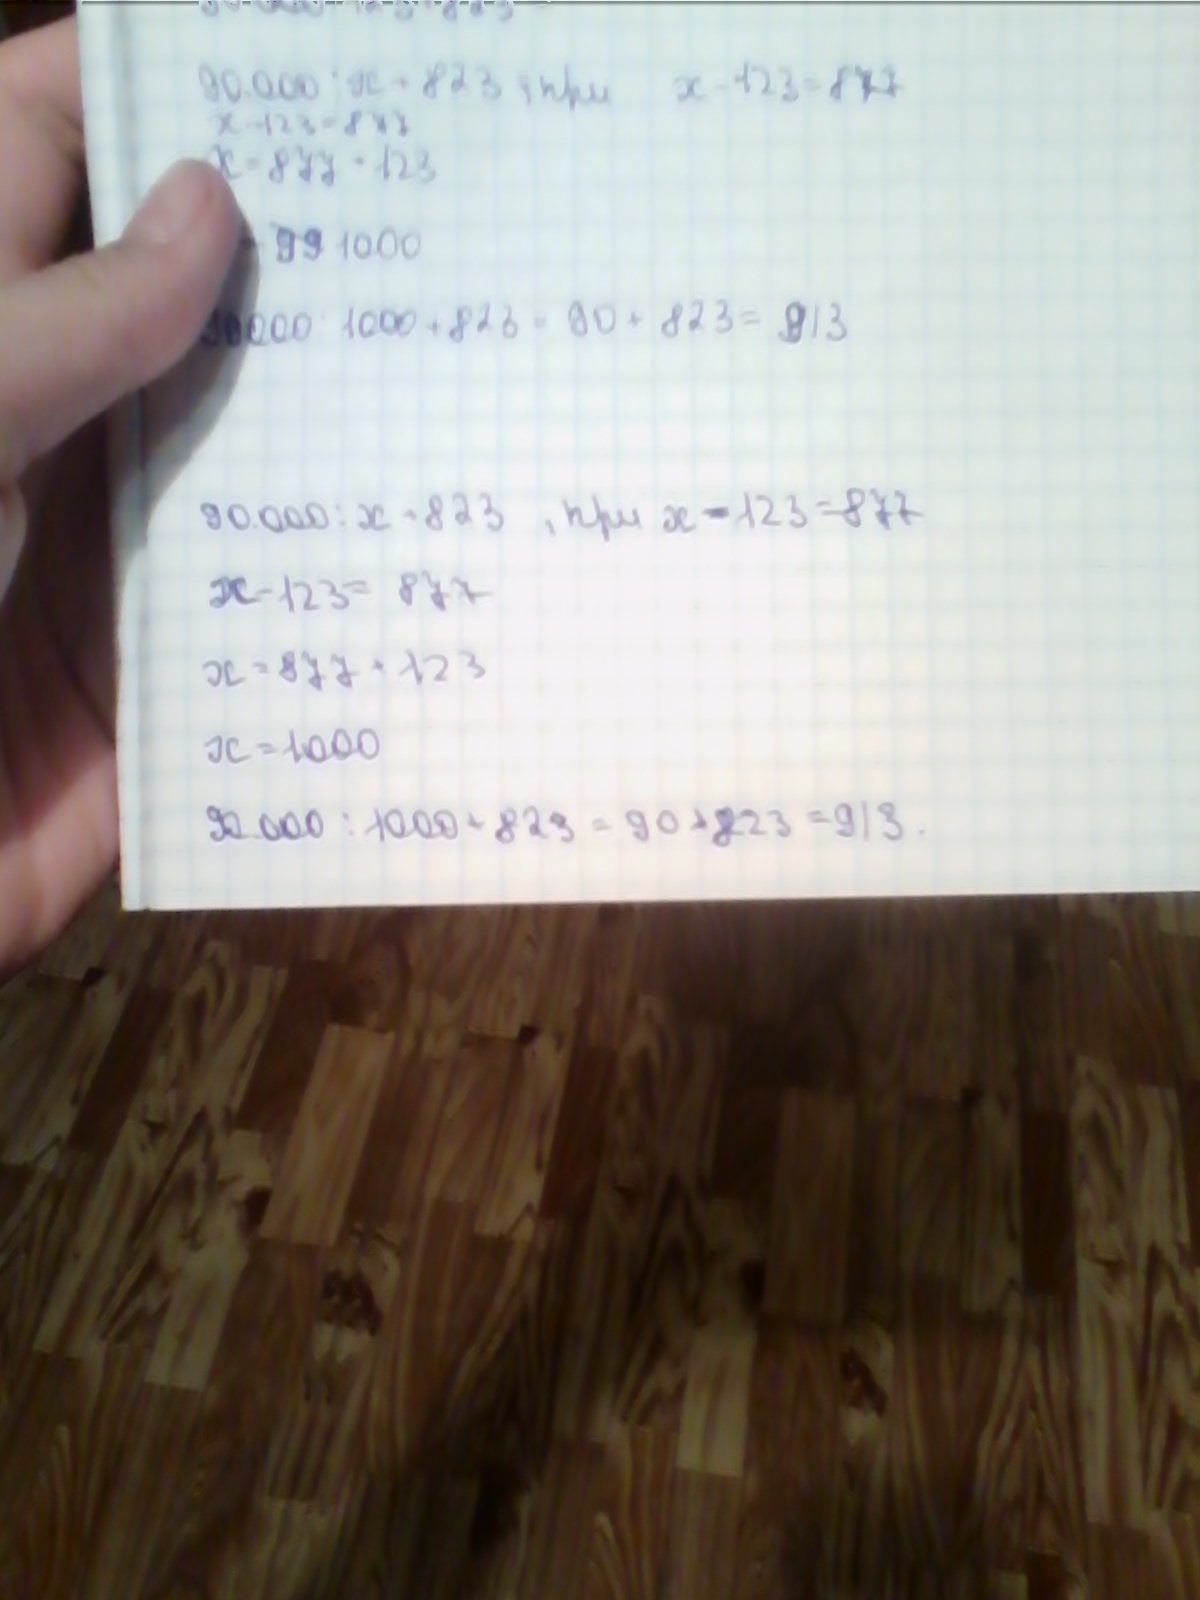 90.000 : x + 823, при x - 123 = 877
x - 123 = 877
x = 877 + 123
= 99 1000
90000 : 1000 + 823 = 90 + 823 = 913
90.000 : x + 823, при x - 123 = 877
x - 123 = 877
x = 877 + 123
x = 1000
90.000 : 1000 + 823 = 90 + 823 = 913.